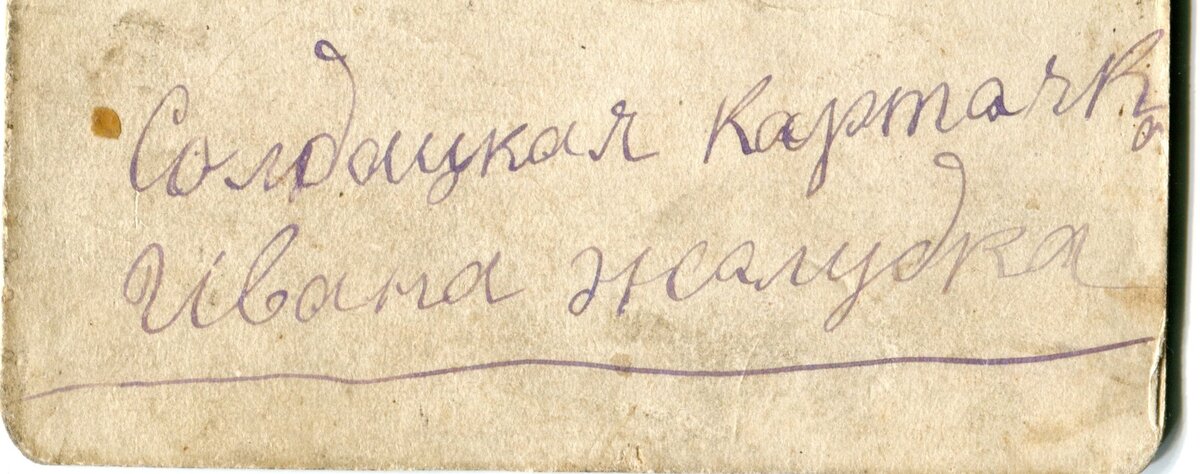 Солдацкая карточка
Ивана жалудка